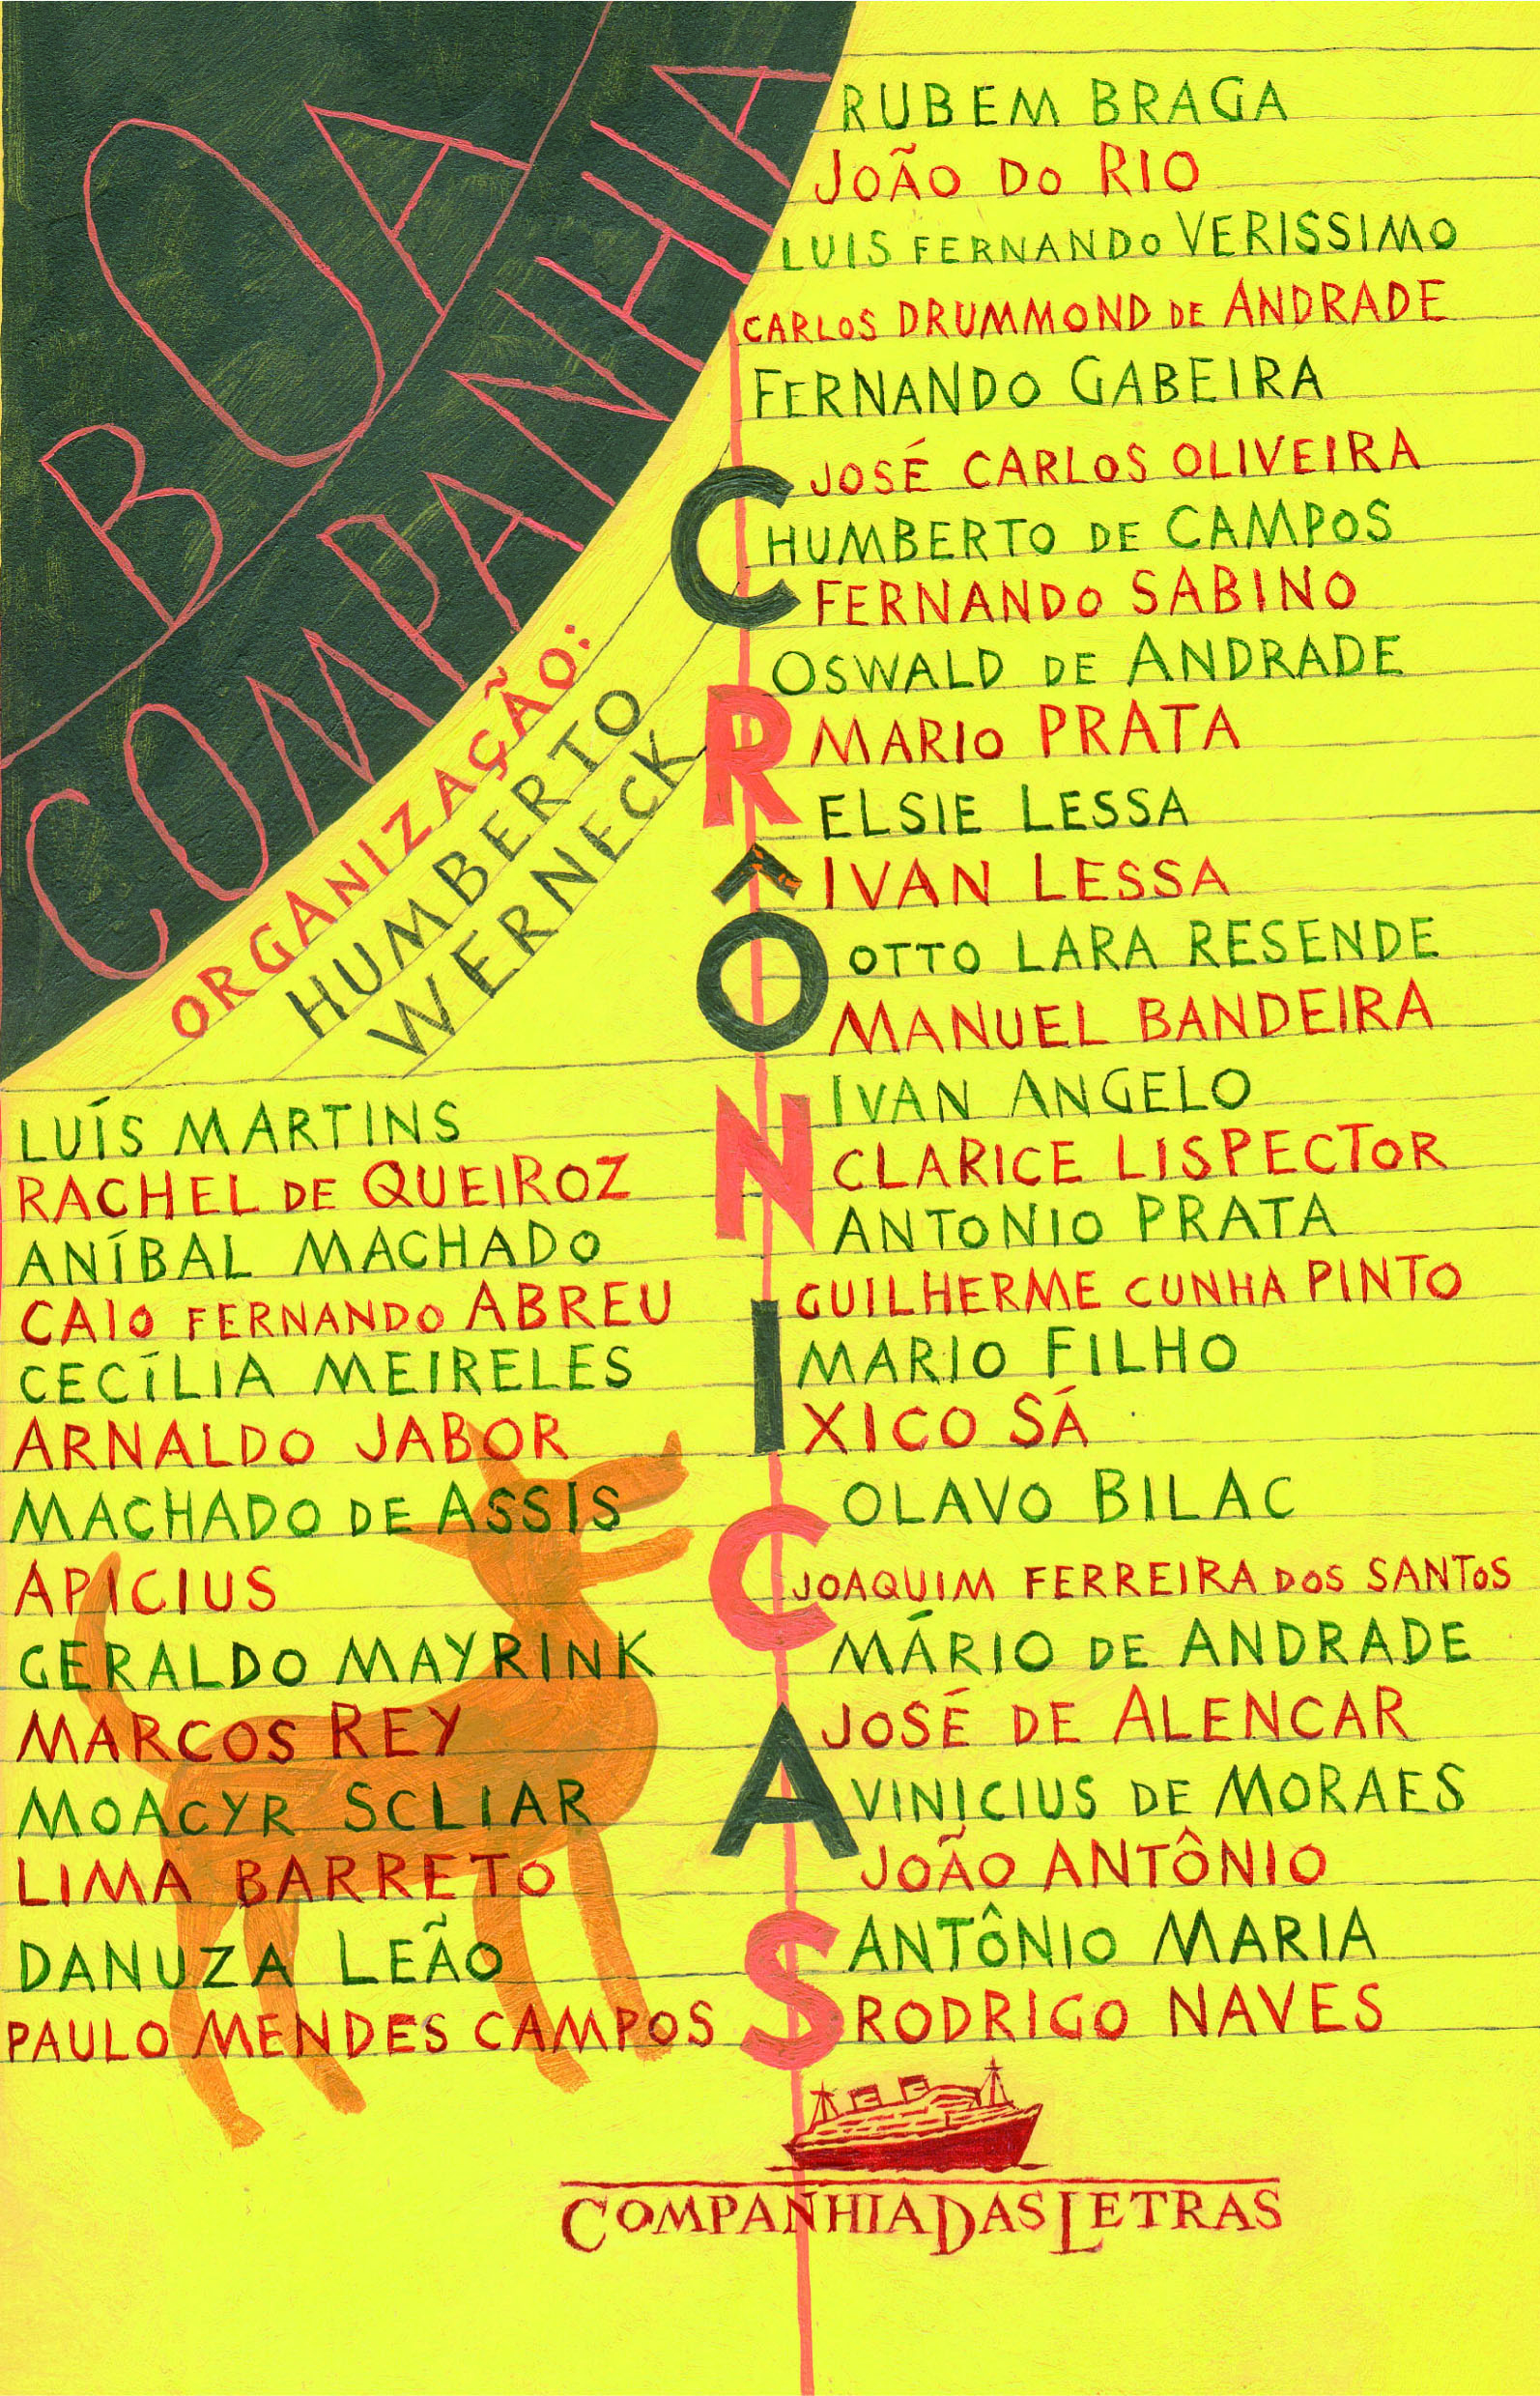 BOA
COMPANHIA
ORGANIZAÇÃO:
HUMBERTO
WERNECK
CRÔNICAS
RUBEM BRAGA
JOÃO DO RIO
LUIS FERNANDO VERISSIMO
CARLOS DRUMMOND DE ANDRADE
FERNANDO GABEIRA
JOSÉ CARLOS OLIVEIRA
HUMBERTO DE CAMPOS
FERNANDO SABINO
OSWALD DE ANDRADE
MARIO PRATA
ELSIE LESSA
IVAN LESSA
OTTO LARA RESENDE
MANUEL BANDEIRA
IVAN ANGELO
CLARICE LISPECTOR
ANTONIO PRATA
GUILHERME CUNHA PINTO
MARIO FILHO
XICO SÁ
OLAVO BILAC
JOAQUIM FERREIRA DOS SANTOS
MÁRIO DE ANDRADE
JOSÉ DE ALENCAR
VINICIUS DE MORAES
JOÃO ANTÔNIO
ANTÔNIO MARIA
RODRIGO NAVES
LUÍS MARTINS
RACHEL DE QUEIROZ
ANÍBAL MACHADO
CAIO FERNANDO ABREU
CECÍLIA MEIRELES
ARNALDO JABOR
MACHADO DE ASSIS
APICIUS
GERALDO MAYRINK
MARCOS REY
MOACYR SCLIAR
LIMA BARRETO
DANUZA LEÃO
PAULO MENDES CAMPOS
COMPANHIA DAS LETRAS